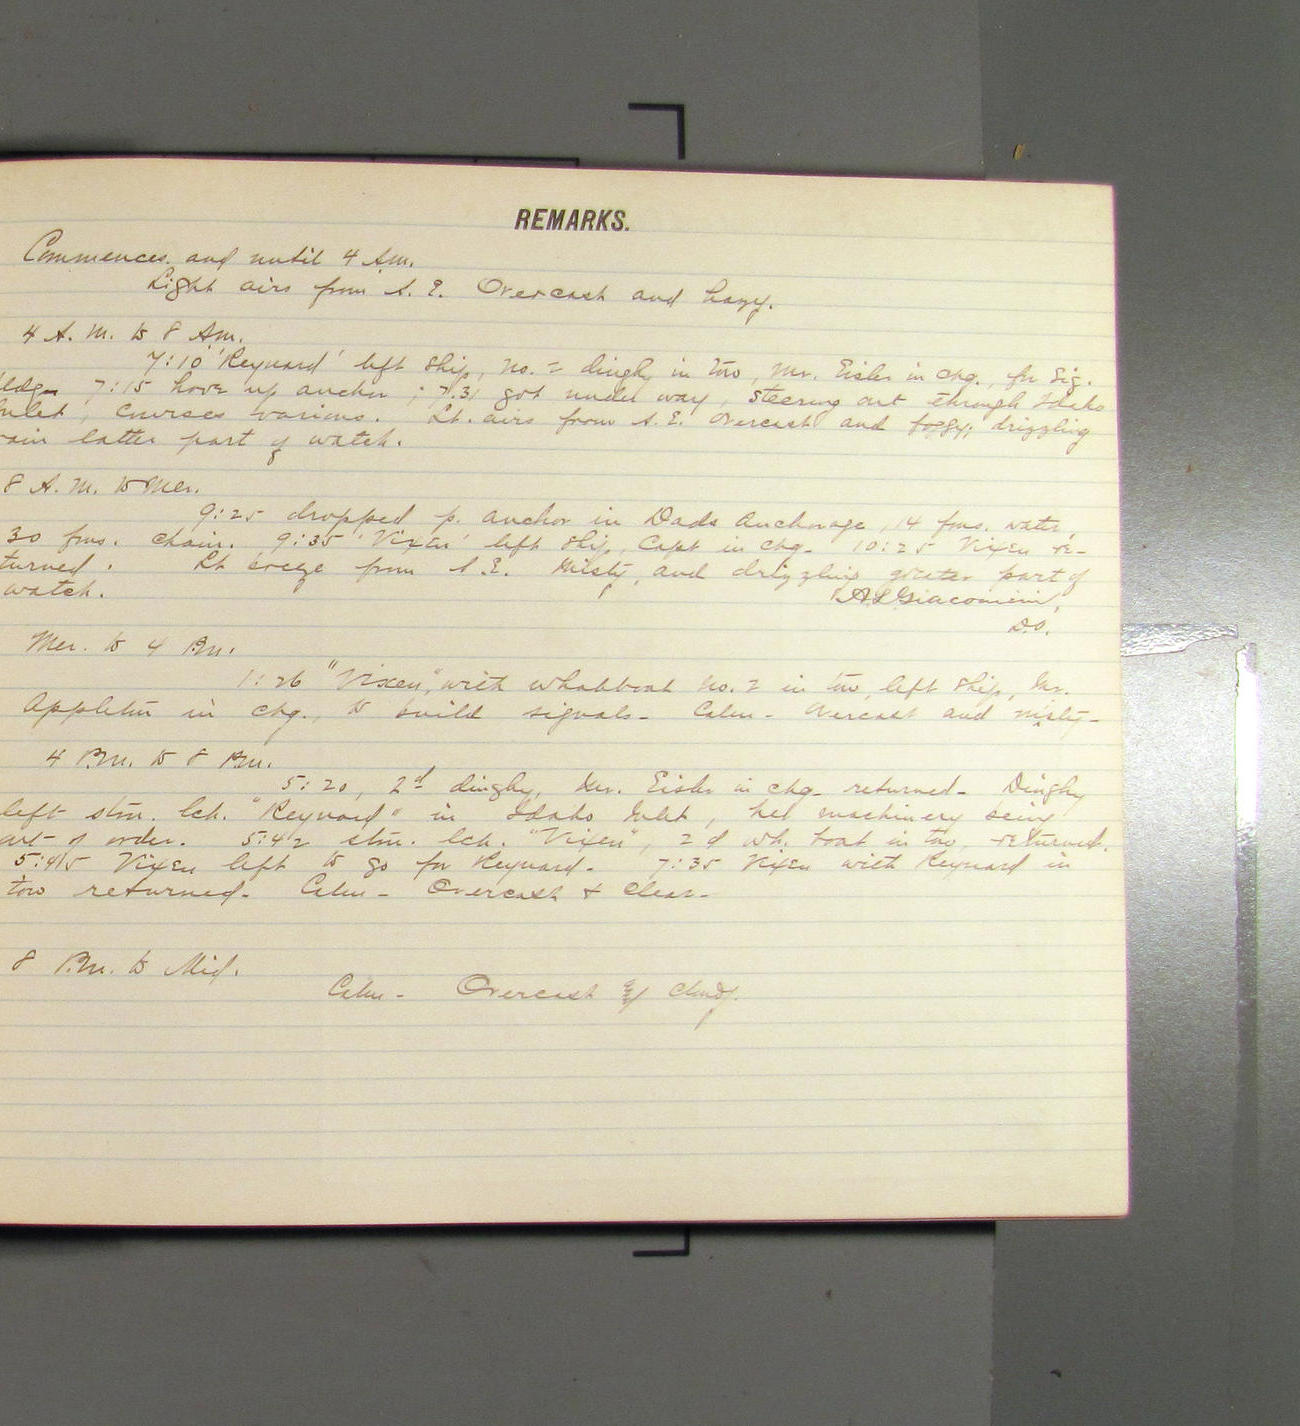 REMARKS.
Commences and until 4 Am.
Light airs from S. E. Overcast and hazy.
4 A. M. to 8 Am.
7:10 'Reynard' left ship, no. 2 dinghy in tow, Mr. Eisler in chg., for Sig.
bldg. 7:15 hove up anchor; 7.31 got under way, steering out through Idaho
Inlet, courses various. Lt. airs from S. E. Overcast and foggy; drizzling
rain latter part of watch.
8 A. M. to Mer.
9:25 dropped p. anchor in Dads Anchorage, 14 fms. water,
30 fms. chain. 9:35 'Vixen' left ship, Capt in chg. 10:25 Vixen re-
turned. Lt breeze from S. E. Misty, and drizzling greater part of
watch. A L Giacomini,
D.O.
Mer. to 4 Pm.
1:26 "Vixen", with whaleboat no. 2 in tow, left ship, Mr.
Appleton in chg., to build signals - Calm - Overcast and misty -
4 Pm. to 8 Pm.
5:20, 2d dinghy, Mr. Eisler in chg. returned - Dinghy
left stm. lch. "Reynard" in Idaho Inlet, her machinery being
out of order. 5:42 stm. lch. "Vixen", 2d wh. boat in tow, returned.
5:45 Vixen left to go for Reynard. 7:35 Vixen with Reynard in
tow returned - Calm - Overcast & Clear -
8 Pm. to Mid.
Calm - Overcast & Cloudy.